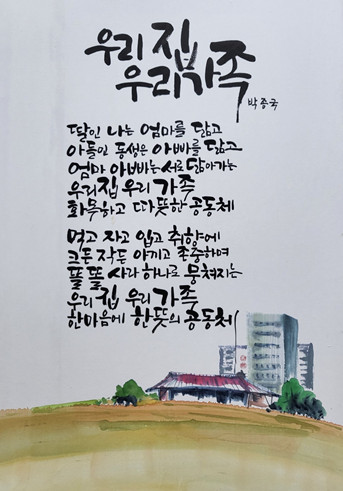 우리 집
우리 가족
박종국
딸인 나는 엄마를 닮고
아들인 동생은 아빠를 닮고
엄마 아빠는 서로 닮아가는
우리 집 우리 가족
화목하고 따뜻한 공동체
먹고 자고 입고 취향에
크든 작든 아끼고 존중하며
똘똘 사랑 하나로 뭉쳐지는
우리 집 우리 가족
한마음에 한뜻의 공동체